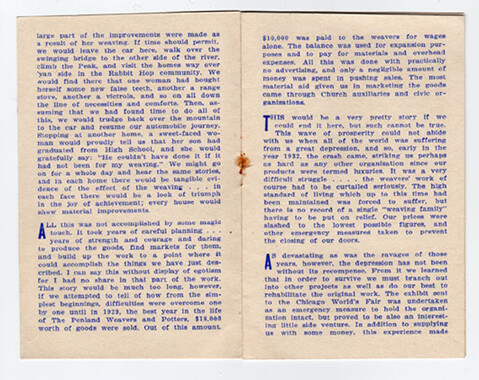 large part of the improvements were made as
a result of her weaving. If time should permit,
we would leave the car here, walk over the
swinging bridge to the other side of the river,
climb the Peak, and visit the homes way over
'yan side in the Rabbit Hop community. We
would find there that one woman had bought
herself some new false teeth, another a range
stove, another a victrola, and so on all down
the line of necessities and comforts. Then, as-
suming that we had found time to do all of
this, we would trudge back over the mountain
to the car and resume our automobile journey.
Stopping at another home, a sweet-faced wo-
man would proudly tell us that her son had
graduated from High School, and she would
gratefully say: "He couldn't have done it if it
had not been for my weaving." We might go
on for a whole day and hear the same stories,
and in each home there would be tangible evi-
dence of the effect of the weaving .... in
each face there would be a look of triumph
in the joy of achievement; every house would
show material improvements.
ALL this was not accomplished by some magic
touch. It took years of careful planning ...
years of strength and courage and daring
to produce the goods, find markets for them,
and build up the work to a point where it
could accomplish the things we have just des-
cribed. I can say this without display of egotism
for I had no share in that part of the work.
This story would be much too long, however,
if we attempted to tell of how from the sim-
plest beginnings, difficulties were overcome one
by one until in 1929, the best year in the life
of The Penland Weavers and Potters, $18,000
worth of goods were sold. Out of this amount,
$10,000 was paid to the weavers for wages
alone. The balance was used for expansion purp-
oses and to pay for materials and overhead
expenses. All this was done with practically
no advertising, and only a negligible amount of
money was spent in pushing sales. The most
material aid given us in marketing the goods
came through Church auxiliaries and civic or-
ganizations.
THIS would be a very pretty story if we
could end it here, but such cannot be true.
This wave of prosperity could not abide
with us when all of the world was suffering
from a great depression, and so, early in the
year 1932, the crash came, striking us perhaps
as hard as any other organization since our
products were termed luxuries. It was a very
difficult struggle ..... the weavers' work of
course had to be curtailed seriously. The high
standard of living which up to this time had
been maintained was forced to suffer, but
there is no record of a single "weaving family"
having to be put on relief. Our prices were
slashed to the lowest possible figures, and
other emergency measures taken to prevent
the closing of our doors.
AS devastating as was the ravages of those
years, however, the depression has not been
without its recompense. From it we learned
that in order to survive we must branch out
into other projects as well as do our best to
rehabilitate the original work. The exhibit sent
to the Chicago World's Fair was undertaken
as an emergency measure to hold the organi-
zation intact, but proved to be also an interest-
ing little side venture. In addition to supplying
us with some money, this experience made